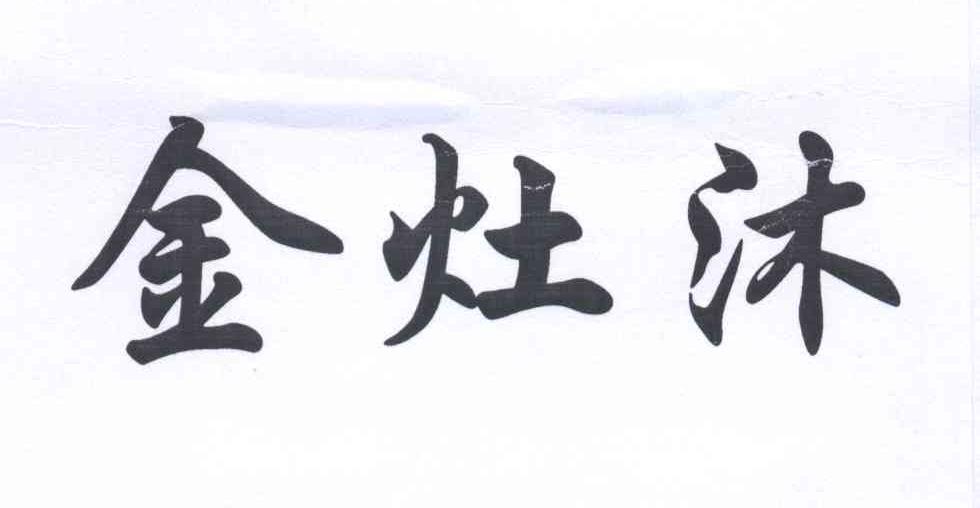 金灶沐